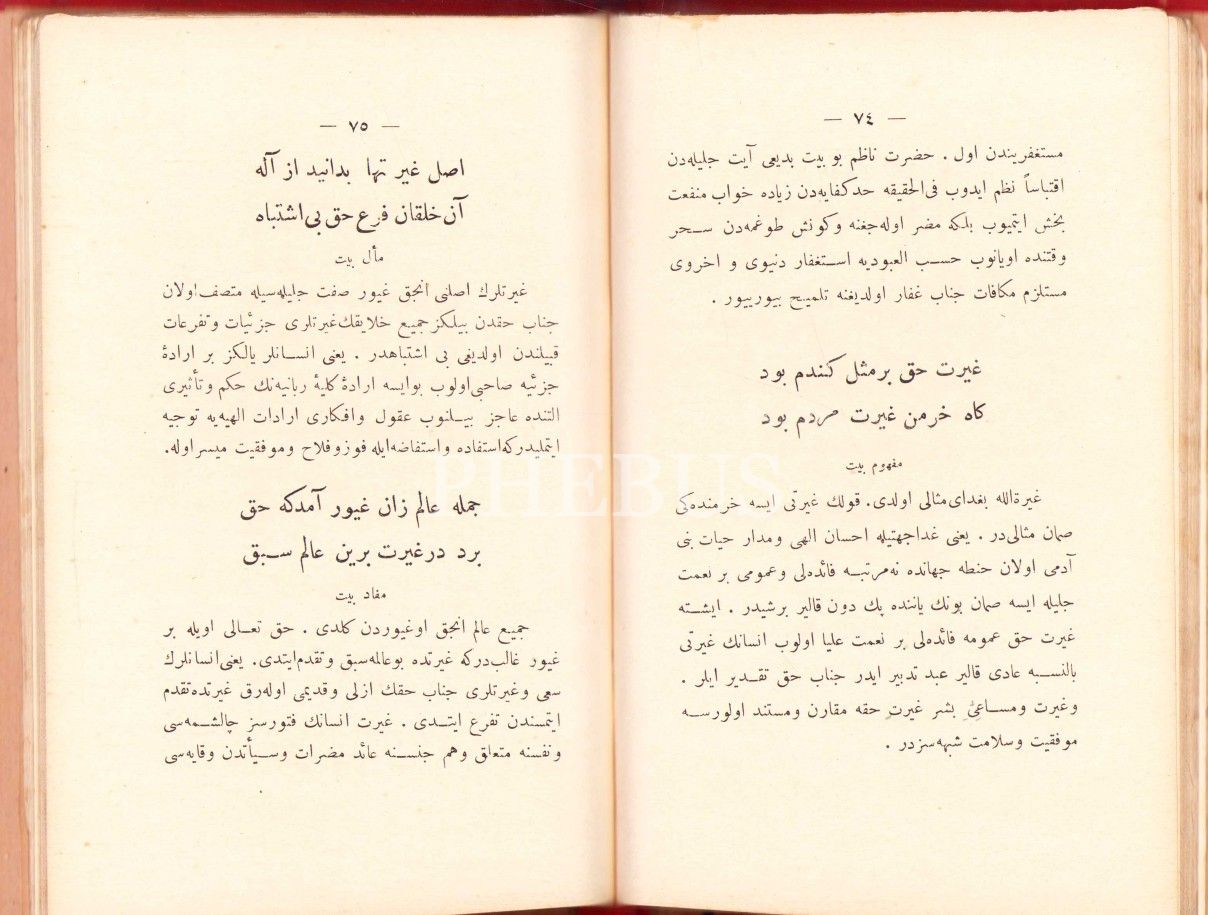 — ٧٤ —
مستغفریندن اول . حضرت ناظم بو بیت بدیعی آیت جلیله‌دن
اقتباساً نظم ایدوب فی‌الحقیقه حدکفایه‌دن زیاده خواب منفعت
بخش ایتمیوب بلکه مضر اوله‌جغنه وکونش طوغمه‌دن سحر
وقتنده اویانوب حسب العبودیه استغفار دنیوی و اخروی
مستلزم مکافات جناب غفار اولدیغنه تلمیح بیورییور .
غیرت حق برمثل کندم بود
کاه خرمن غیرت مردم بود
مفهوم بیت
غیرة‌الله بغدای مثالی اولدی. قولك غیرتی ایسه خرمنده‌کی
صمان مثالی‌در . یعنی غداجهتیله احسان الهی ومدار حیات بنی
آدمی اولان حنطه جهانده نه‌مرتبه فائده‌لی وعمومی بر نعمت
جلیله ایسه صمان بونك یاننده پك دون قالیر برشیدر . ایشته
غیرت حق عمومه فائده‌لی بر نعمت علیا اولوب انسانك غیرتی
بالنسبه عادی قالیر عبد تدبیر ایدر جناب حق تقدیر ایلر .
وغیرت ومساعئ بشر غیرت حقه مقارن ومستند اولورسه
موفقیت وسلامت شبهه‌سزدر .
— ٧٥ —
اصل غیرتها بدانید از آله
آن خلقان فرع حق بی‌اشتباه
مأل بیت
غیرتلرك اصلنی آنجق غیور صفت جلیله‌سیله متصف اولان
جناب حقدن بیلکز جمیع خلایقك غیرتلری جزئیات وتفرعات
قبیلندن اولدیغی بی اشتباهدر . یعنی انسانلر یالکز بر ارادۀ
جزئیه صاحبی اولوب بوایسه ارادۀ کلیۀ ربانیه‌نك حکم وتأثیری
التنده عاجز بیلنوب عقول وافکاری ارادات الهیه‌یه توجیه
ایتملیدرکه استفاده واستفاضه‌ایله فوزوفلاح وموفقیت میسر اوله.
جمله عالم زان غیور آمدکه حق
برد درغیرت برین عالم سبق
مفاد بیت
جمیع عالم انجق اوغیوردن کلدی . حق تعالی اویله بر
غیور غالب‌درکه غیرتده بوعالمه سبق وتقدم ایتدی. یعنی انسانلرك
سعی وغیرتلری جناب حقك ازلی وقدیمی اوله‌رق غیرتده تقدم
ایتمسندن تفرع ایتدی . غیرت انسانك فتورسز چالشمه‌سی
ونفسنه متعلق وهم جنسنه عائد مضرات وسیأتدن وقایه‌سی
PHEBUS